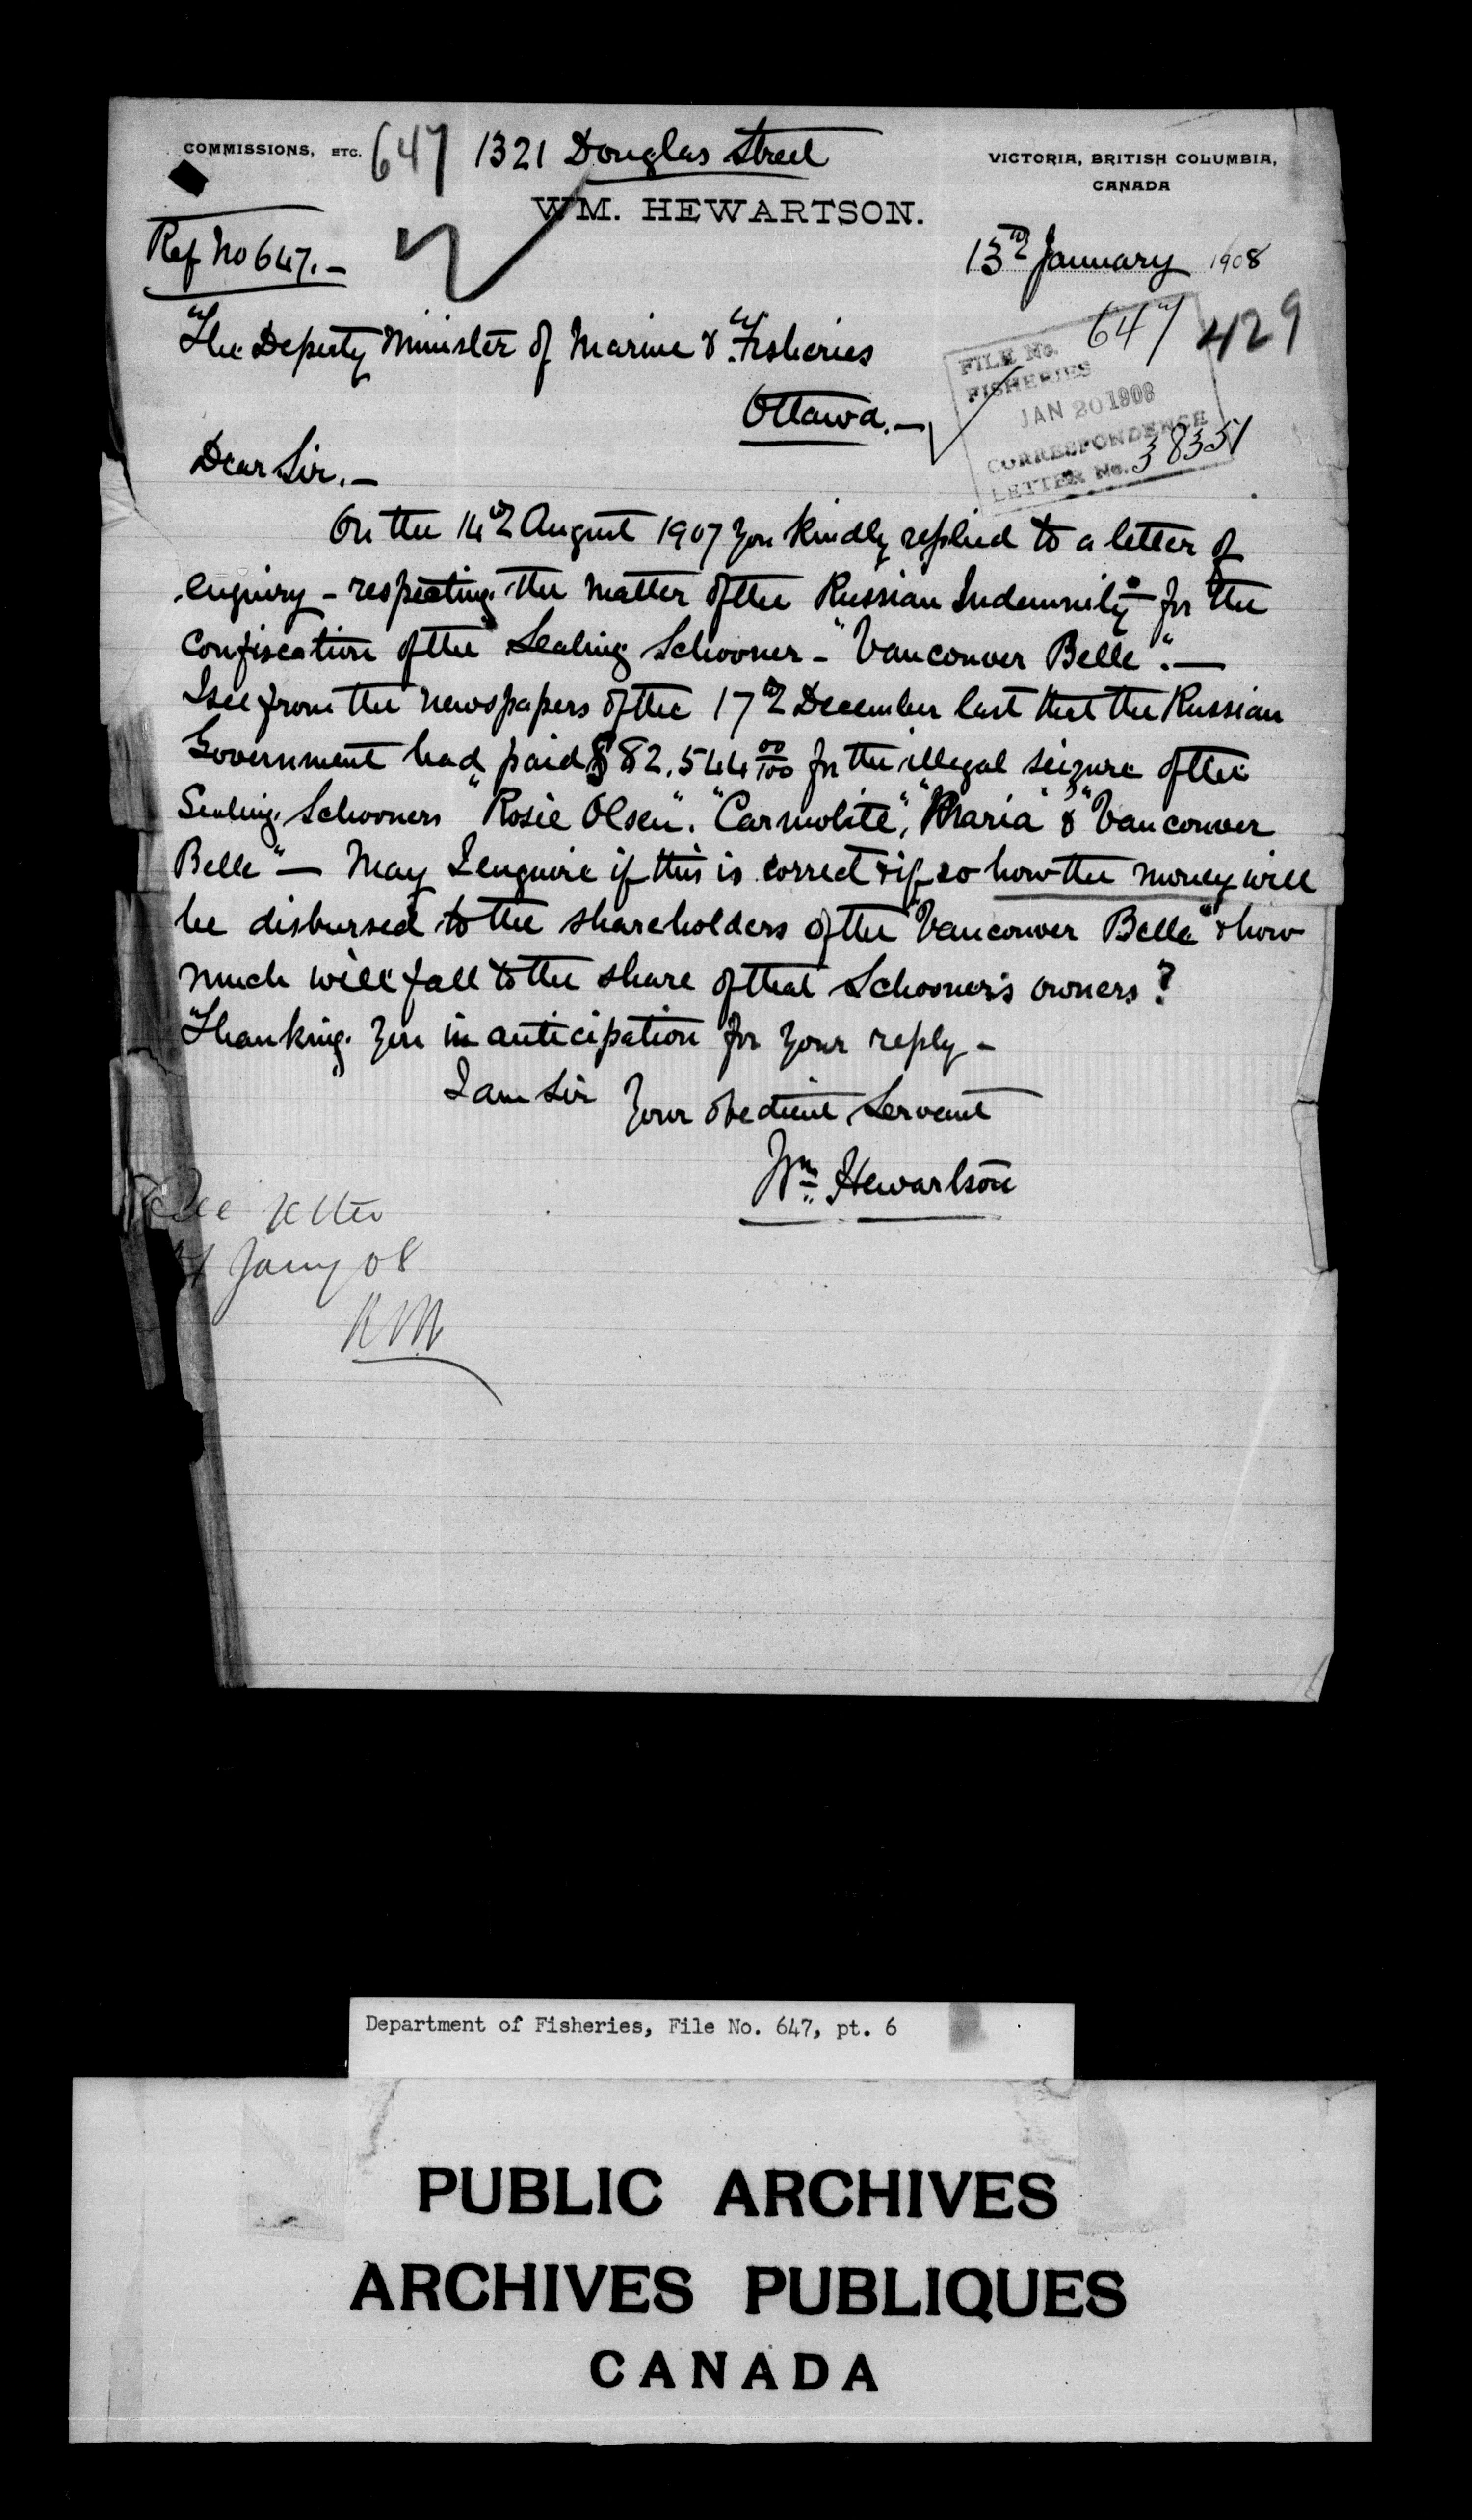 COMMISSIONS, ETC. 647 1321 Douglas Street
VICTORIA, BRITISH COLUMBIA,
CANADA
WM. HEWARTSON.
Ref No 647.—
13th January 1908
The Deputy Minister of Marine & Fisheries
Ottawa.—
FILE No. 647 429
FISHERIES
JAN 20 1908
CORRESPONDENCE
LETTER No. 38351
Dear Sir.—
On the 14th August 1907 you kindly replied to a letter of
enquiry – respecting the matter of the Russian Indemnity – for the
confiscation of the Sealing Schooner – "Vancouver Belle".—
I see from the newspapers of the 17th December last that the Russian
Government had paid $82,544 00/100 for the illegal seizure of the
Sealing Schooners "Rosie Olsen". "Carmolite", "Maria" & "Vancouver
Belle" — May I enquire if this is correct & if so how the money will
be disbursed to the shareholders of the "Vancouver Belle" & how
much will fall to the share of that Schooner's owners?
Thanking you in anticipation for your reply –
I am Sir Your obedient Servant
Wm Hewartson
See letter
Jany 08
Department of Fisheries, File No. 647, pt. 6
PUBLIC ARCHIVES
ARCHIVES PUBLIQUES
CANADA